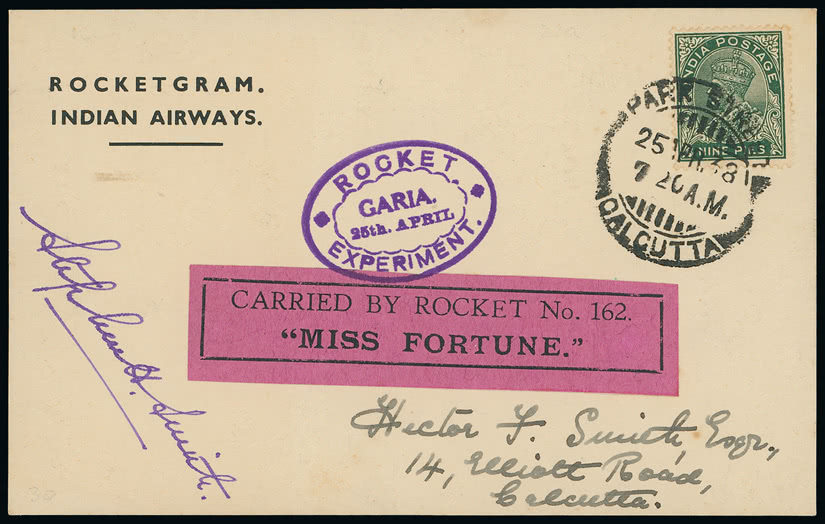 ROCKETGRAM.
INDIAN AIRWAYS.
INDIA POSTAGE
NINE PIES
PARK
25 38
7 20 A.M.
CALCUTTA
ROCKET.
GARIA.
25th. APRIL
EXPERIMENT.
CARRIED BY ROCKET No. 162.
“MISS FORTUNE.”
Stephen H. Smith.
Hector F. Smith, Esqr.,
14, Elliott Road,
Calcutta.
30